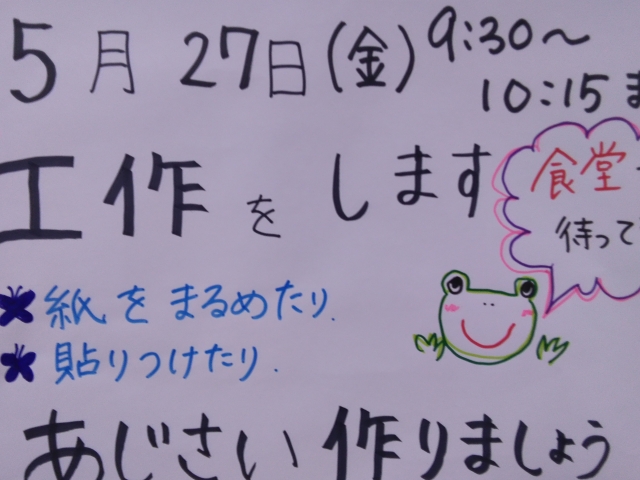 5月27日(金) 9:30～
10:15ま
工作をします
食堂
待って
紙をまるめたり.
貼りつけたり.
あじさい作りましょう